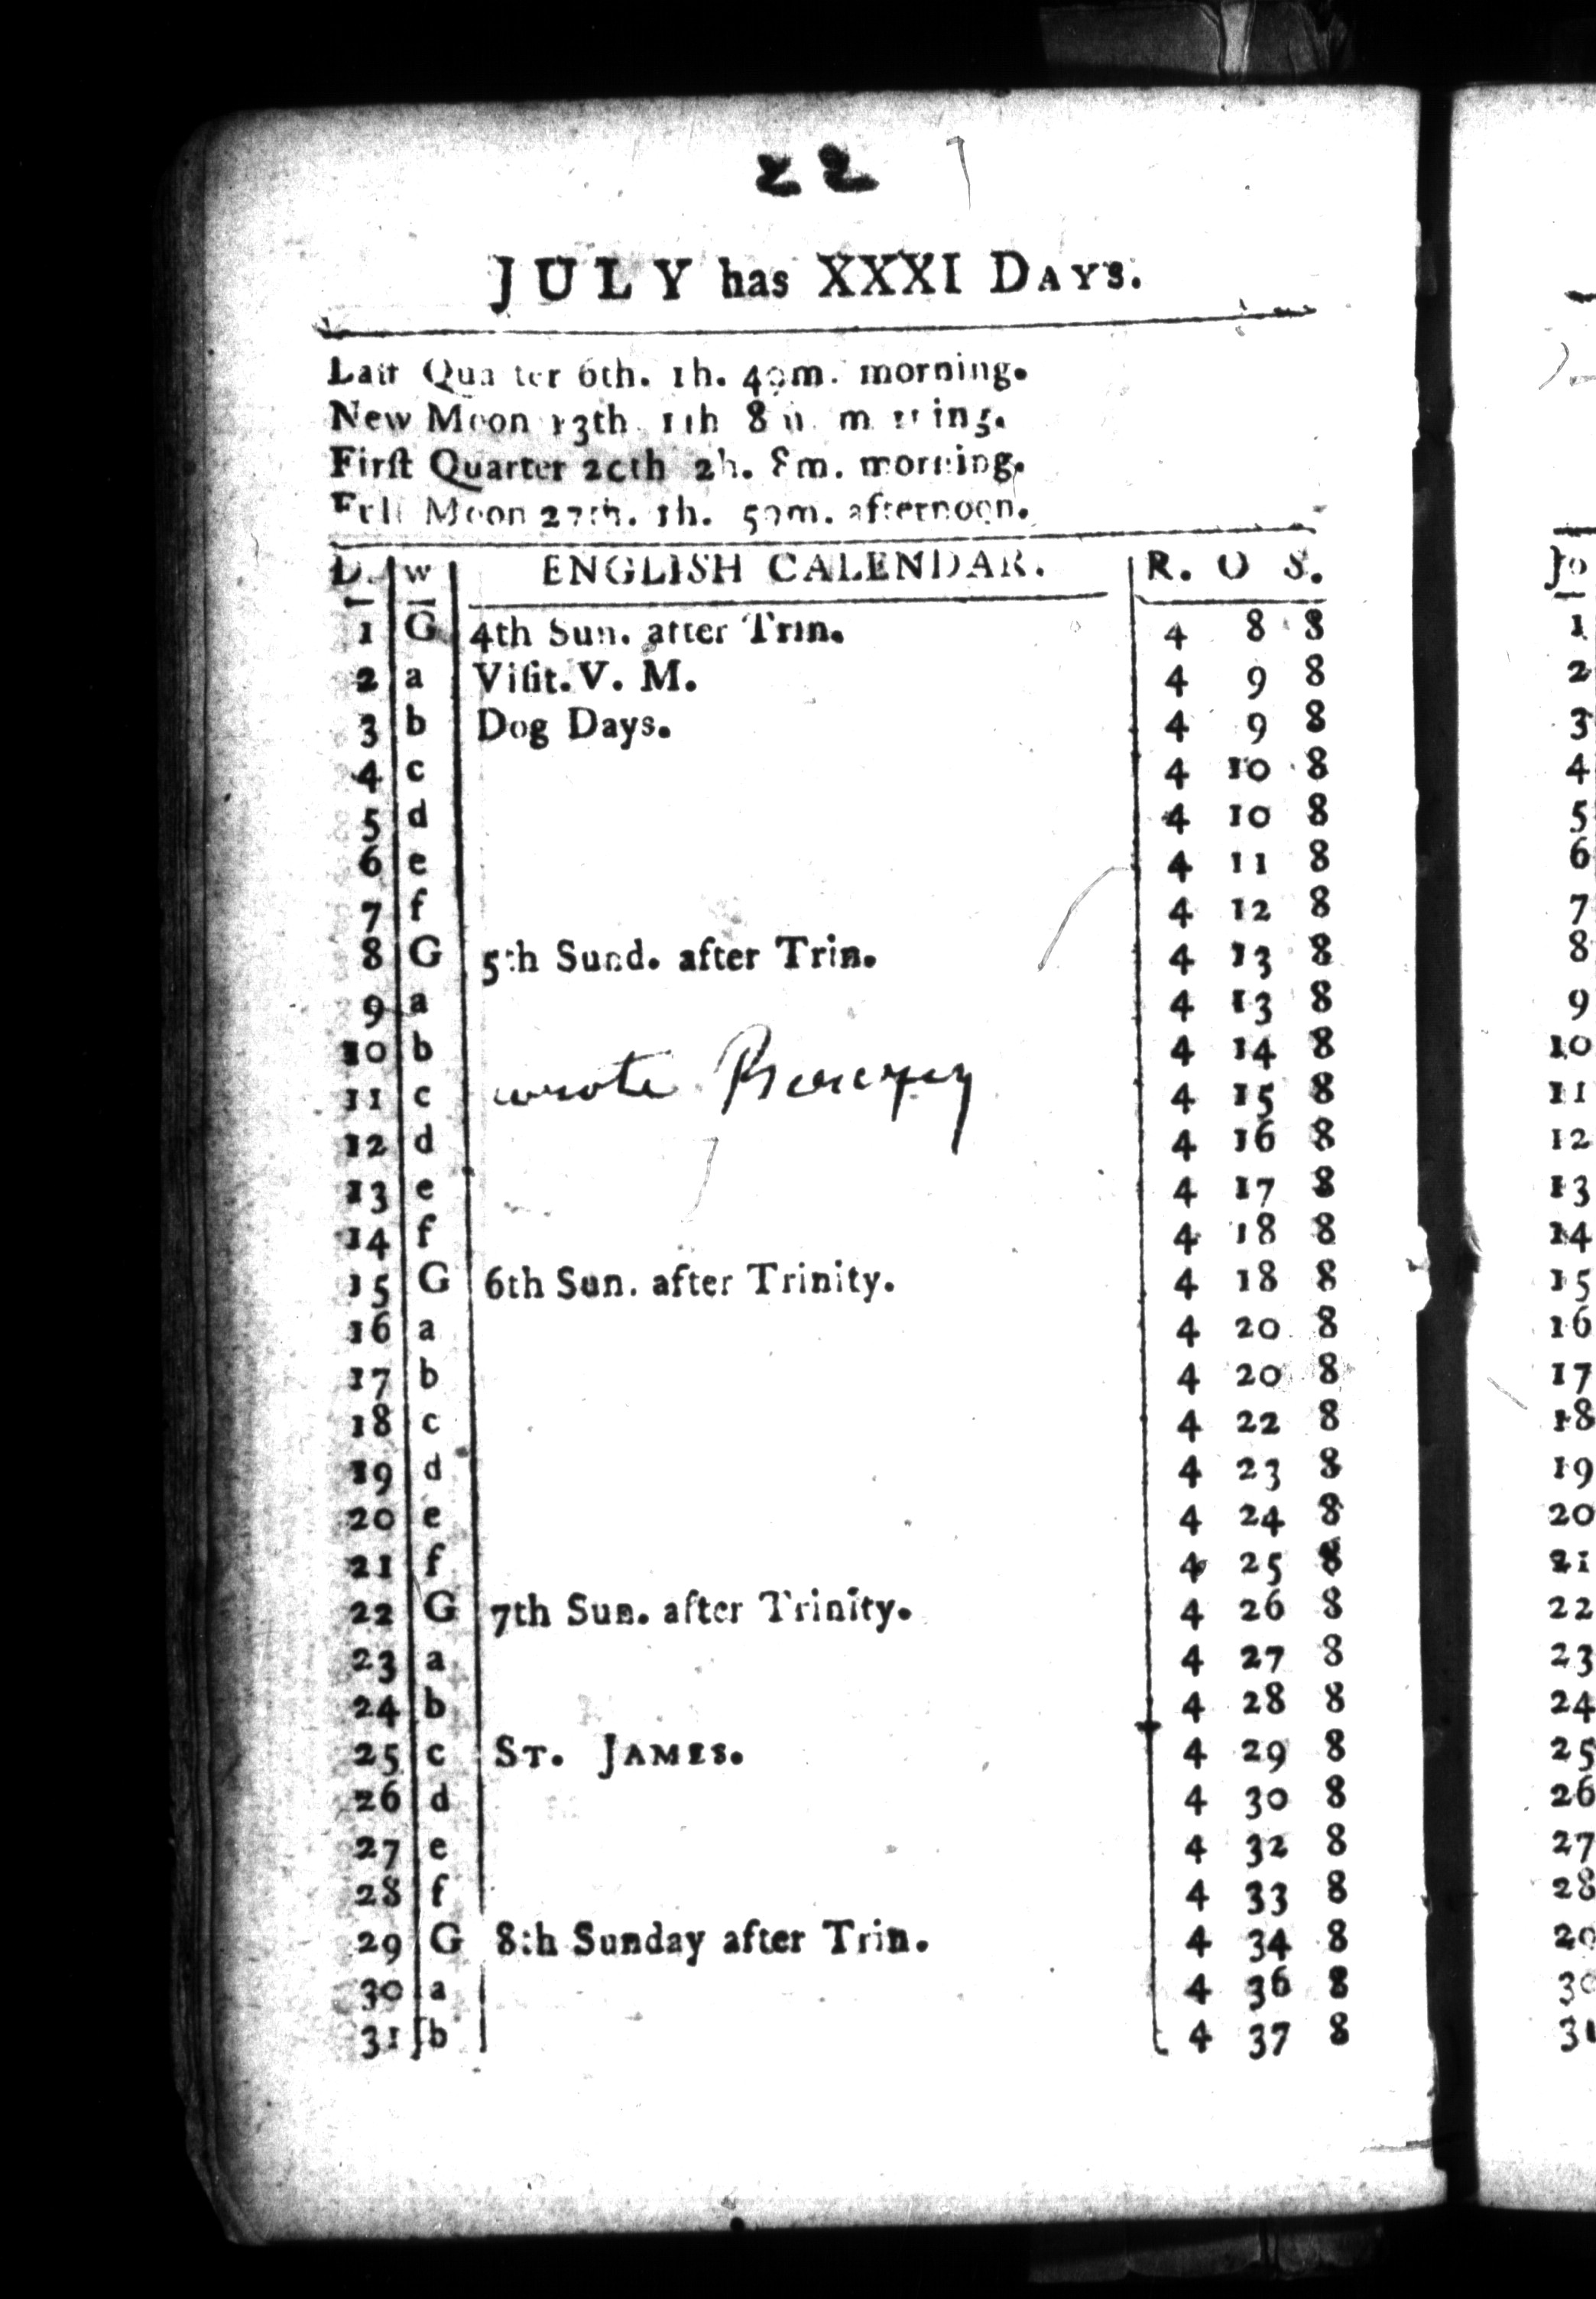 22
JULY has XXXI DAYS.
Last Quarter 6th. 1h. 49m. morning.
New Moon 13th 11h 8 m. morning.
First Quarter 20th 2h. 8m. morning.
Full Moon 27th. 1h. 59m. afternoon.
D. w ENGLISH CALENDAR. R. O S.
1 G 4th Sun. after Trin. 4 8 8
2 a Visit. V. M. 4 9 8
3 b Dog Days. 4 9 8
4 c 4 10 8
5 d 4 10 8
6 e 4 11 8
7 f 4 12 8
8 G 5th Sund. after Trin. 4 13 8
9 a 4 13 8
10 b 4 14 8
11 c wrote 4 15 8
12 d 4 16 8
13 e 4 17 8
14 f 4 18 8
15 G 6th Sun. after Trinity. 4 18 8
16 a 4 20 8
17 b 4 20 8
18 c 4 22 8
19 d 4 23 8
20 e 4 24 8
21 f 4 25 8
22 G 7th Sun. after Trinity. 4 26 8
23 a 4 27 8
24 b 4 28 8
25 c ST. JAMES. 4 29 8
26 d 4 30 8
27 e 4 32 8
28 f 4 33 8
29 G 8th Sunday after Trin. 4 34 8
30 a 4 36 8
31 b 4 37 8
Jo
1
2
3
4
5
6
7
8
9
10
11
12
13
14
15
16
17
18
19
20
21
22
23
24
25
26
27
28